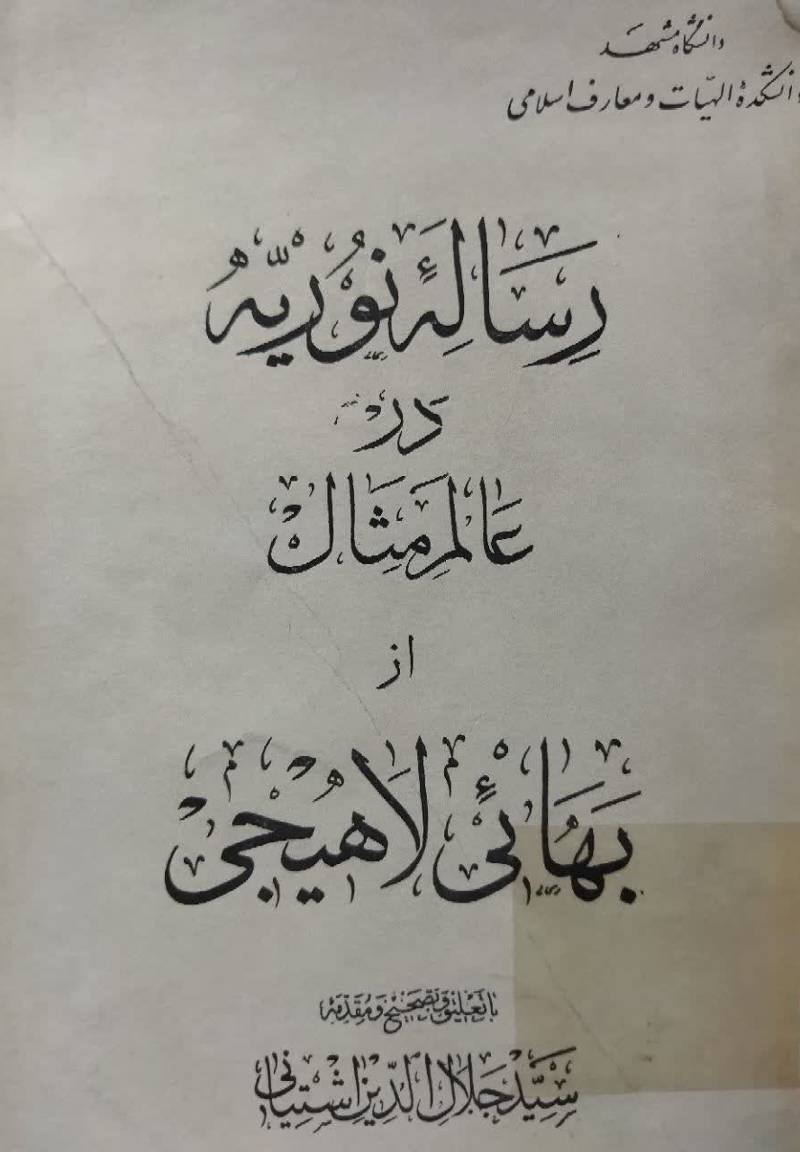 دانشگاه مشهد
دانشکدهٔ الهیّات و معارف اسلامی
رِسَالِهٔ نُورِیّهُ
دَر
عَالَمِ مِثَال
از
بَهَائیٔ لَاهیجی
با تعلیق و تصحیح و مقدمه
سَیِّد جَلال الدّین اشتیانی